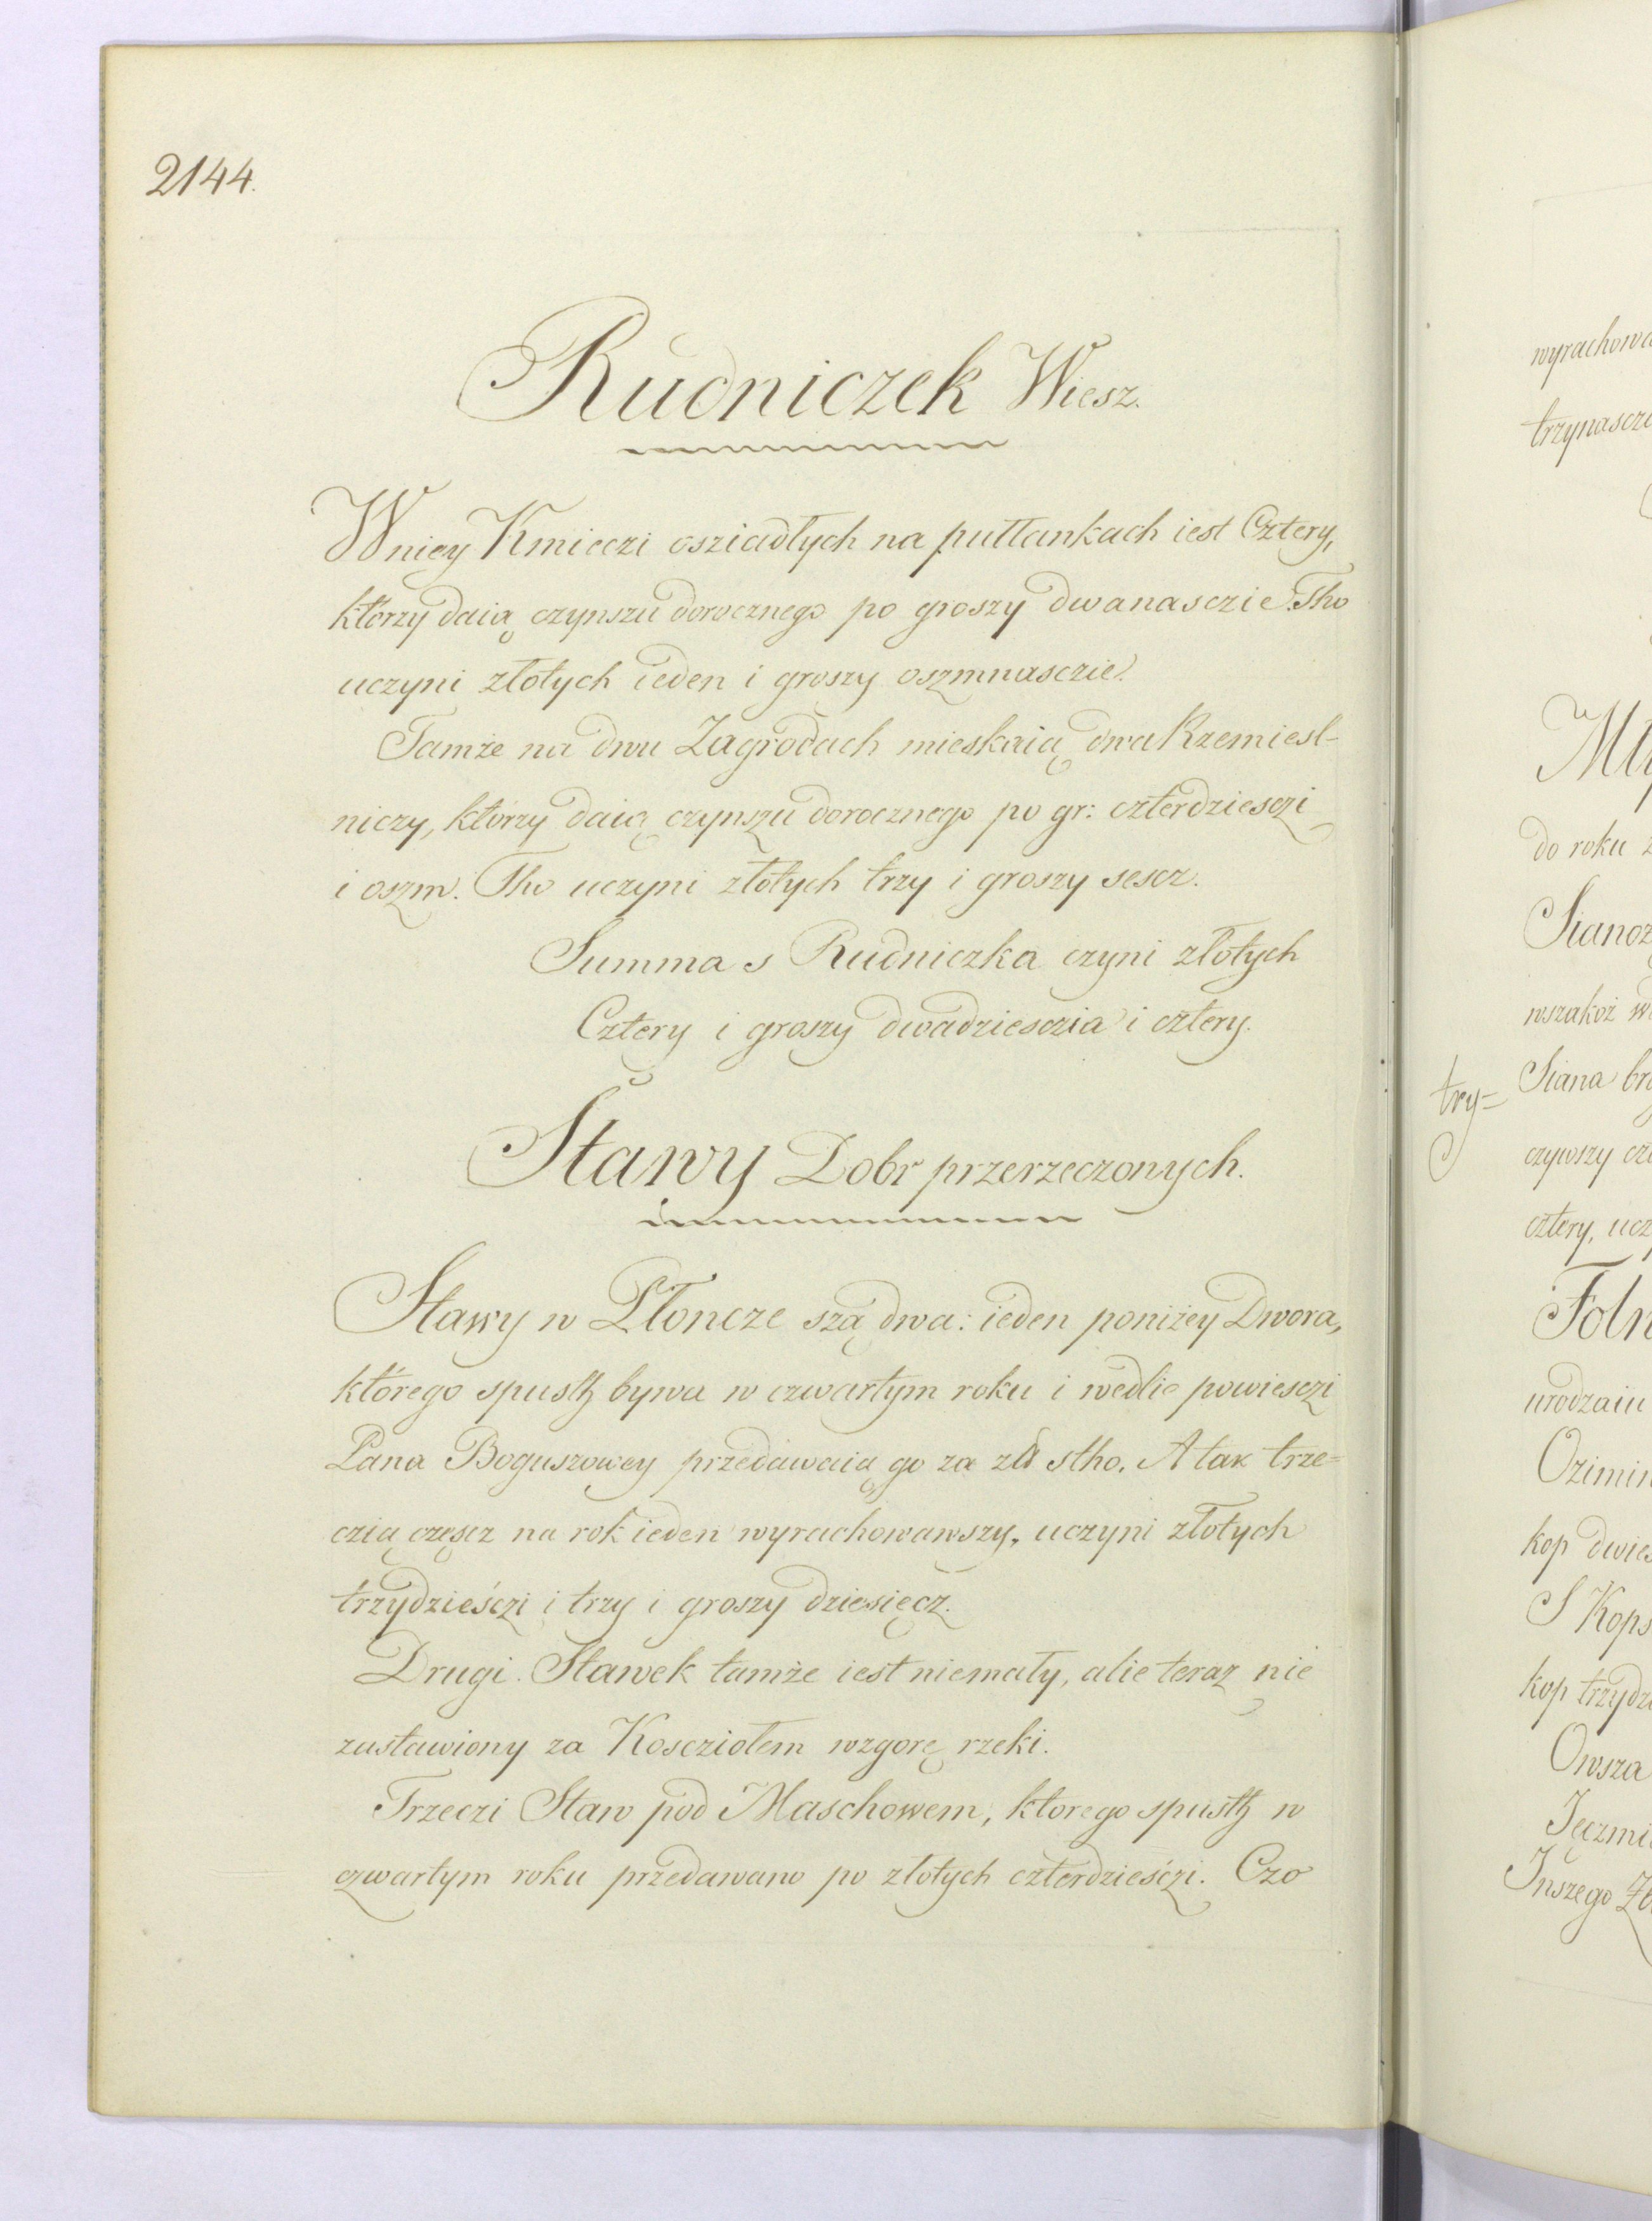 2144.
Rudniczek Wiesz.
Wniey Kmieczi osziadłych na pułłankach iest Cztery,
którzy daią czynszu dorocznego po groszy dwanasczie. Tho
uczyni złotych ieden i groszy oszmnasczie.
Tamże na dwu Zagrodach mieskaią dwa Rzemiesl-
niczy, którzy daią czynszu dorocznego po gr: czterdziesczi
i oszm. Tho uczyni złotych trzy i groszy sescz.
Summa s Rudniczka czyni złotych
Cztery i groszy dwadziesczia i cztery.
Stawy Dobr przerzeczonych.
Stawy w Płoncze szą dwa: ieden poniżey Dwora,
którego spustz bywa w czwartym roku i wedlie powiesczi
Pana Boguszowey przedawaią go za zł stho. A tak trze=
czią częscz na rok ieden wyrachowawszy, uczyni złotych
trzydzieśczi i trzy i groszy dziesięcz.
Drugi Stawek tamże iest niemały, alie teraz nie
zastawiony za Kosciołem wzgorę rzeki.
Trzeczi Staw pod Maschowem, ktorego spustz w
czwartym roku przedawano po złotych czterdzieśczi. Czo
wyrachowa
trzynascz
Mły
do roku z
Sianoż
wszakoż w
try=
Siana br
czywszy cz
cztery, ucz
Folw
urodzaiu
Ozimin
kop dwies
S Kops
kop trzydz
Owsza
Jęczmi
Inszego Zb